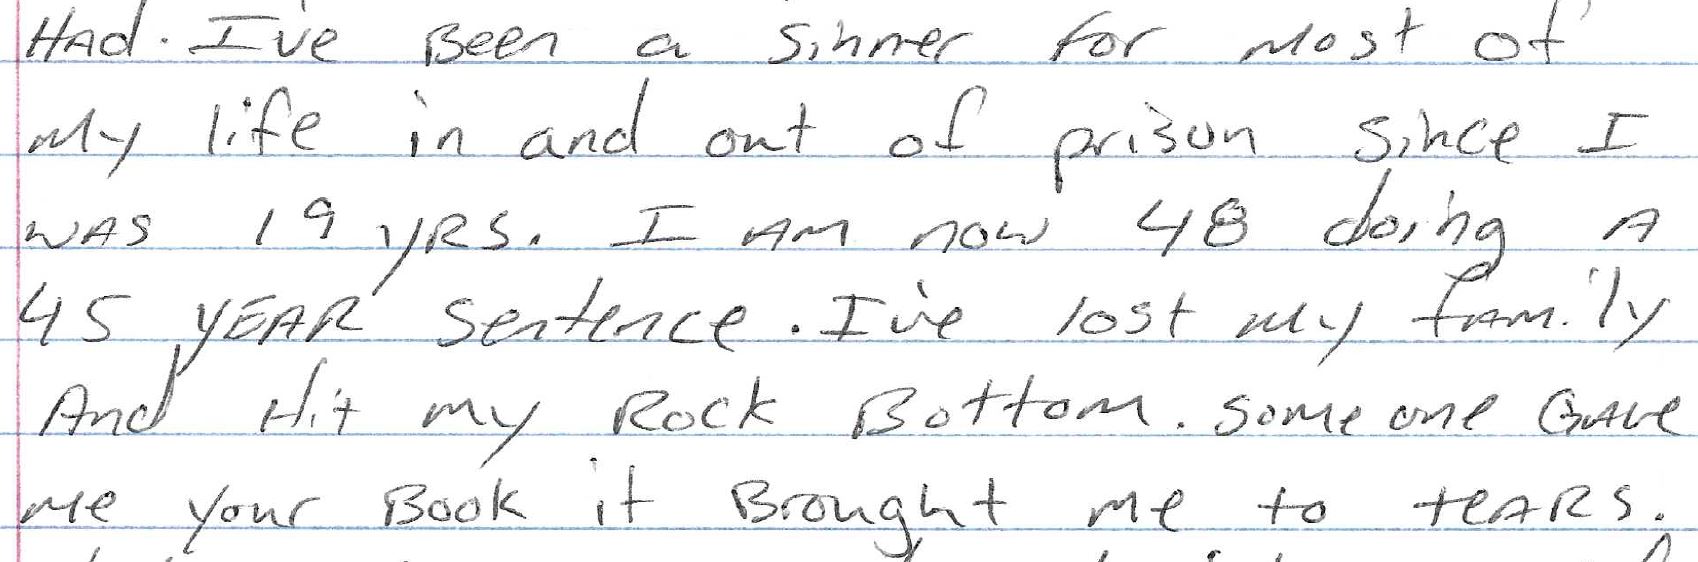 Had. I've Been a Sinner for Most of
My life in and out of prison since I
WAS 19 yRS. I AM now 48 doing A
45 yEAR Sentence. I've lost My fAMily
And Hit my Rock Bottom. Some one GAve
me your Book it Brought me to teARS.